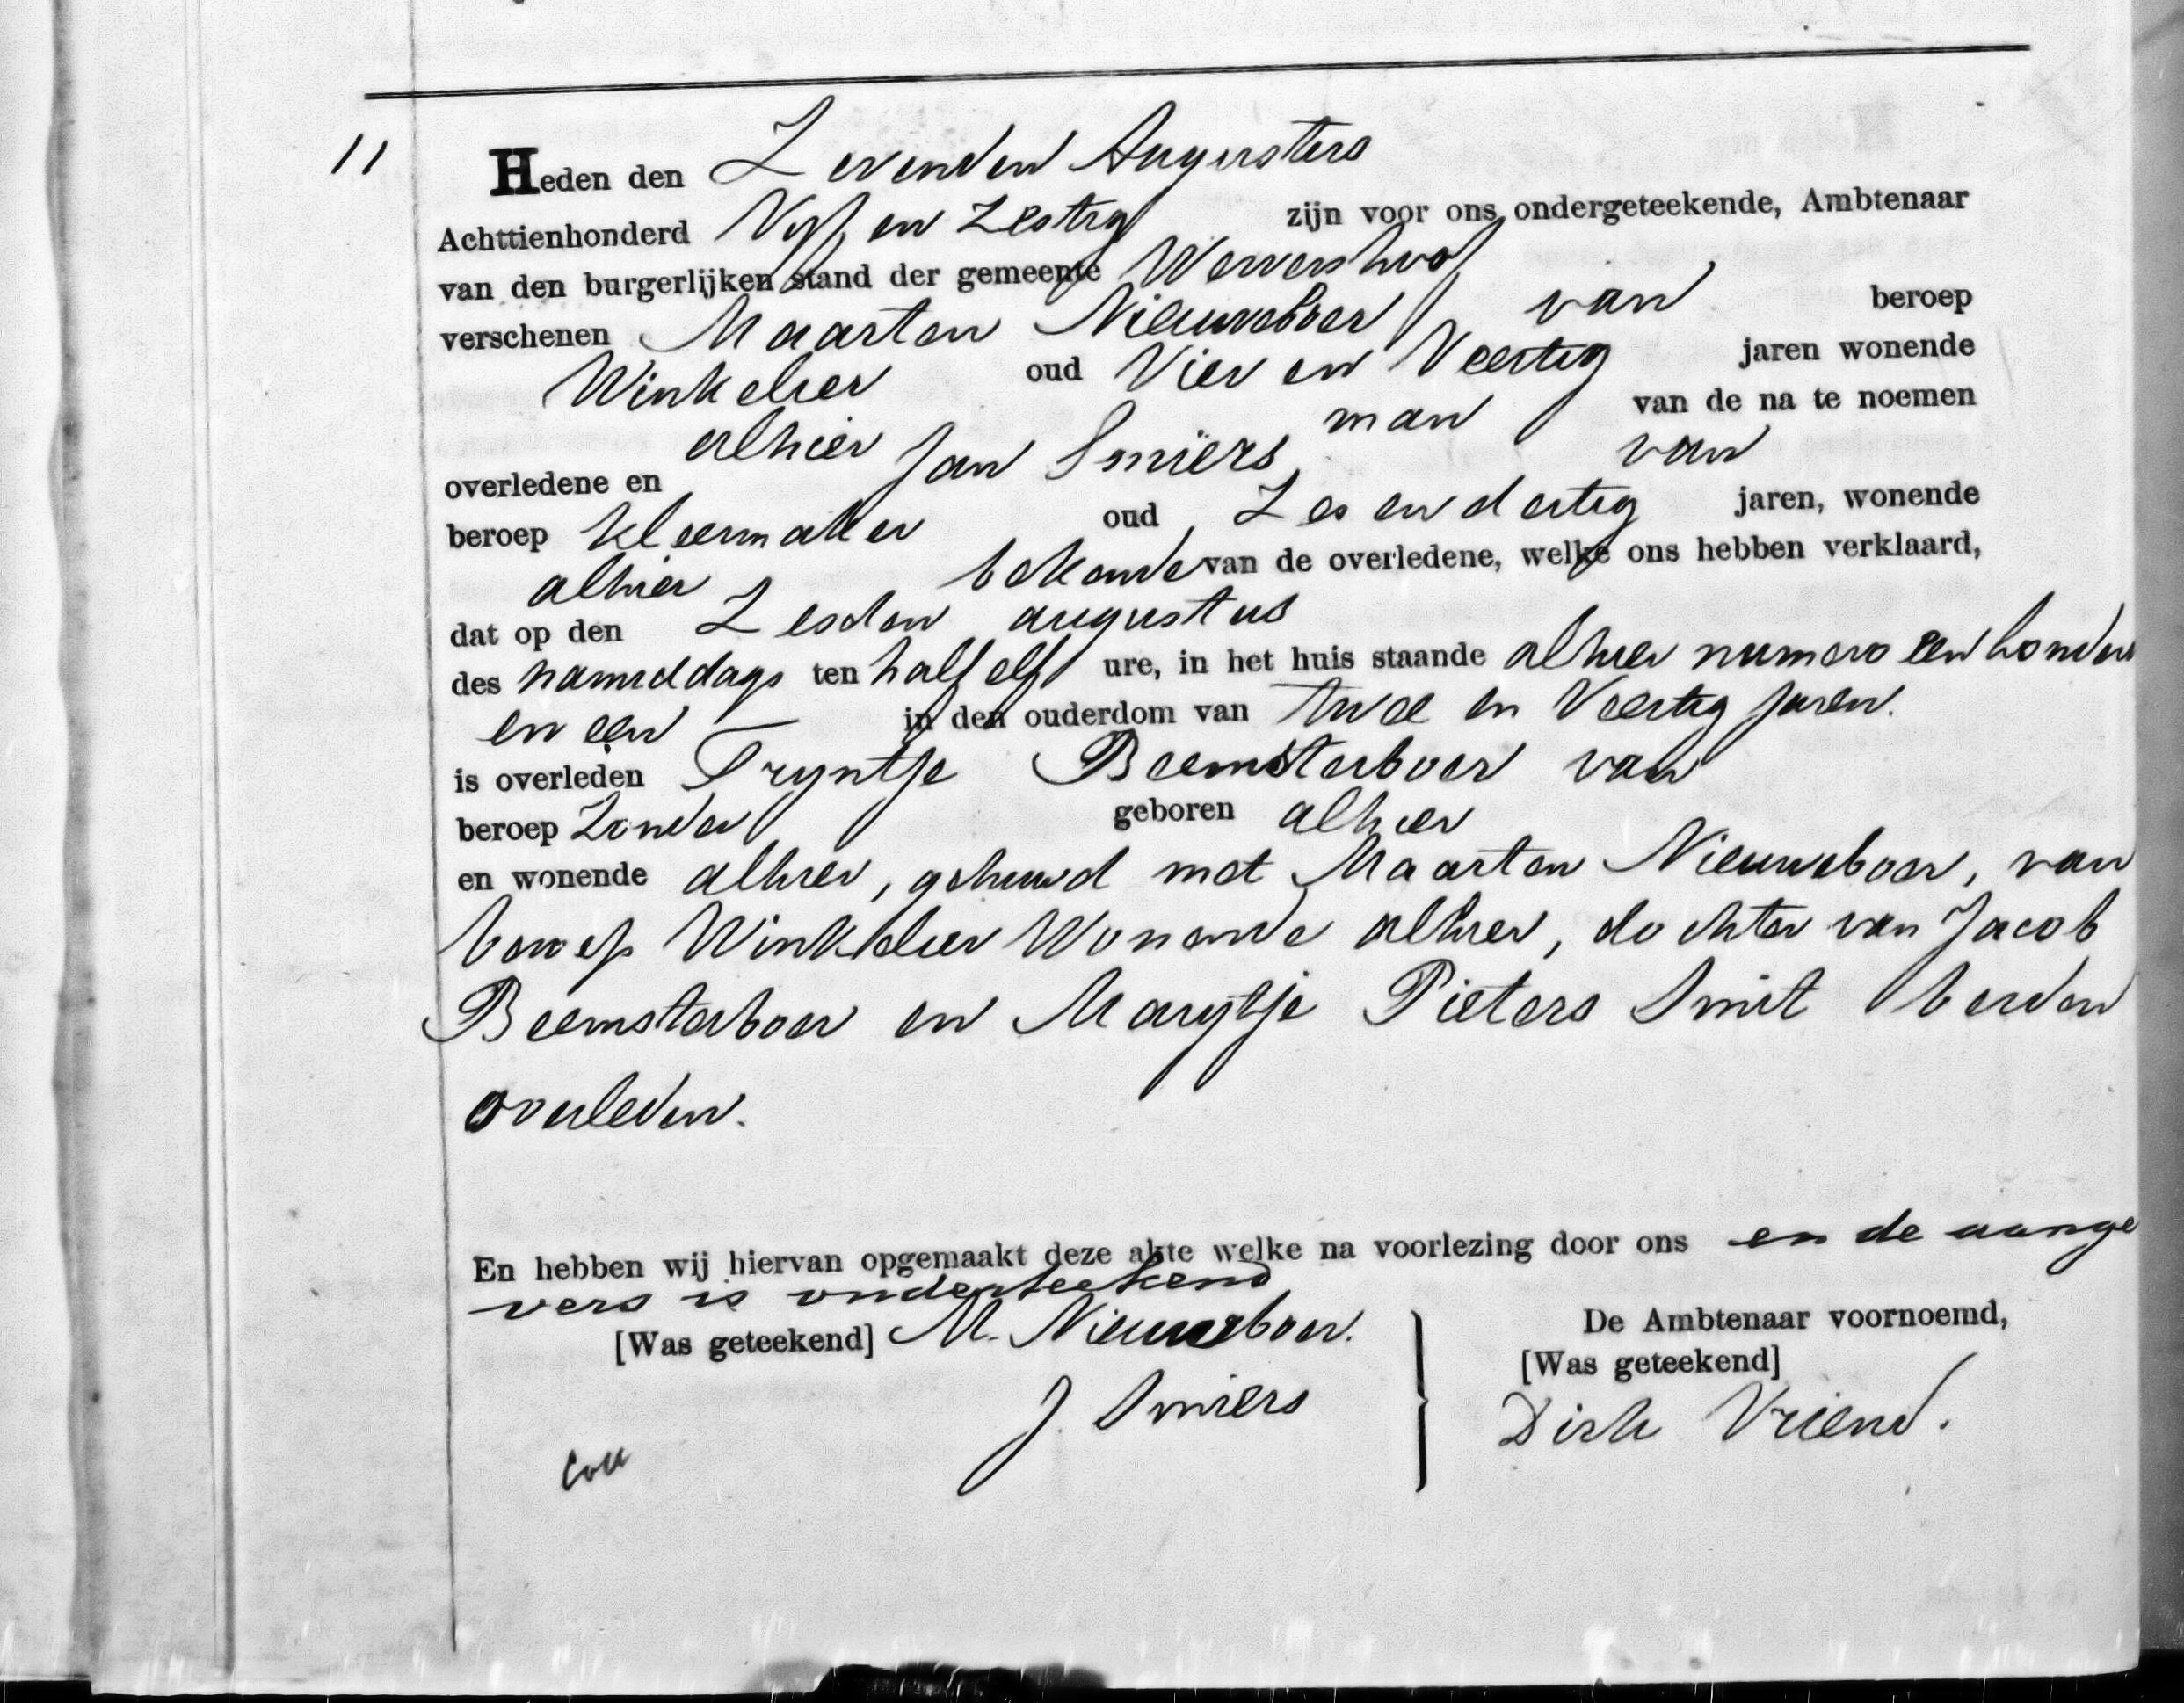 11
Heden den Zevenden Augustus
Achttienhonderd Vyf en Zestig zijn voor ons ondergeteekende, Ambtenaar
van den burgerlijken stand der gemeente Wervershoof
verschenen Maarten Nieuweboer van beroep
Winkelier oud Vier en Veertig jaren wonende
alhier man van de na te noemen
overledene en Jan Smiers, van
beroep kleermaker oud Zes en dertig jaren, wonende
alhier bekende van de overledene, welke ons hebben verklaard,
dat op den Zesden augustus
des namiddags ten half elf ure, in het huis staande alhier numero een honder
en een — in den ouderdom van twee en Veertig jaren.
is overleden Tryntje Beemsterboer van
beroep Zonder geboren alhier
en wonende alhier, gehuwd met Maarten Nieuweboer, van
beroep Winkelier Wonende alhier, dochter van Jacob
Beemsterboer en Marytje Pieters Smit beiden
overleden.
En hebben wij hiervan opgemaakt deze akte welke na voorlezing door ons en de aange
vers is onderteekend
[Was geteekend] M. Nieuweboer. De Ambtenaar voornoemd,
[Was geteekend]
J. Smiers Dirk Vriend.